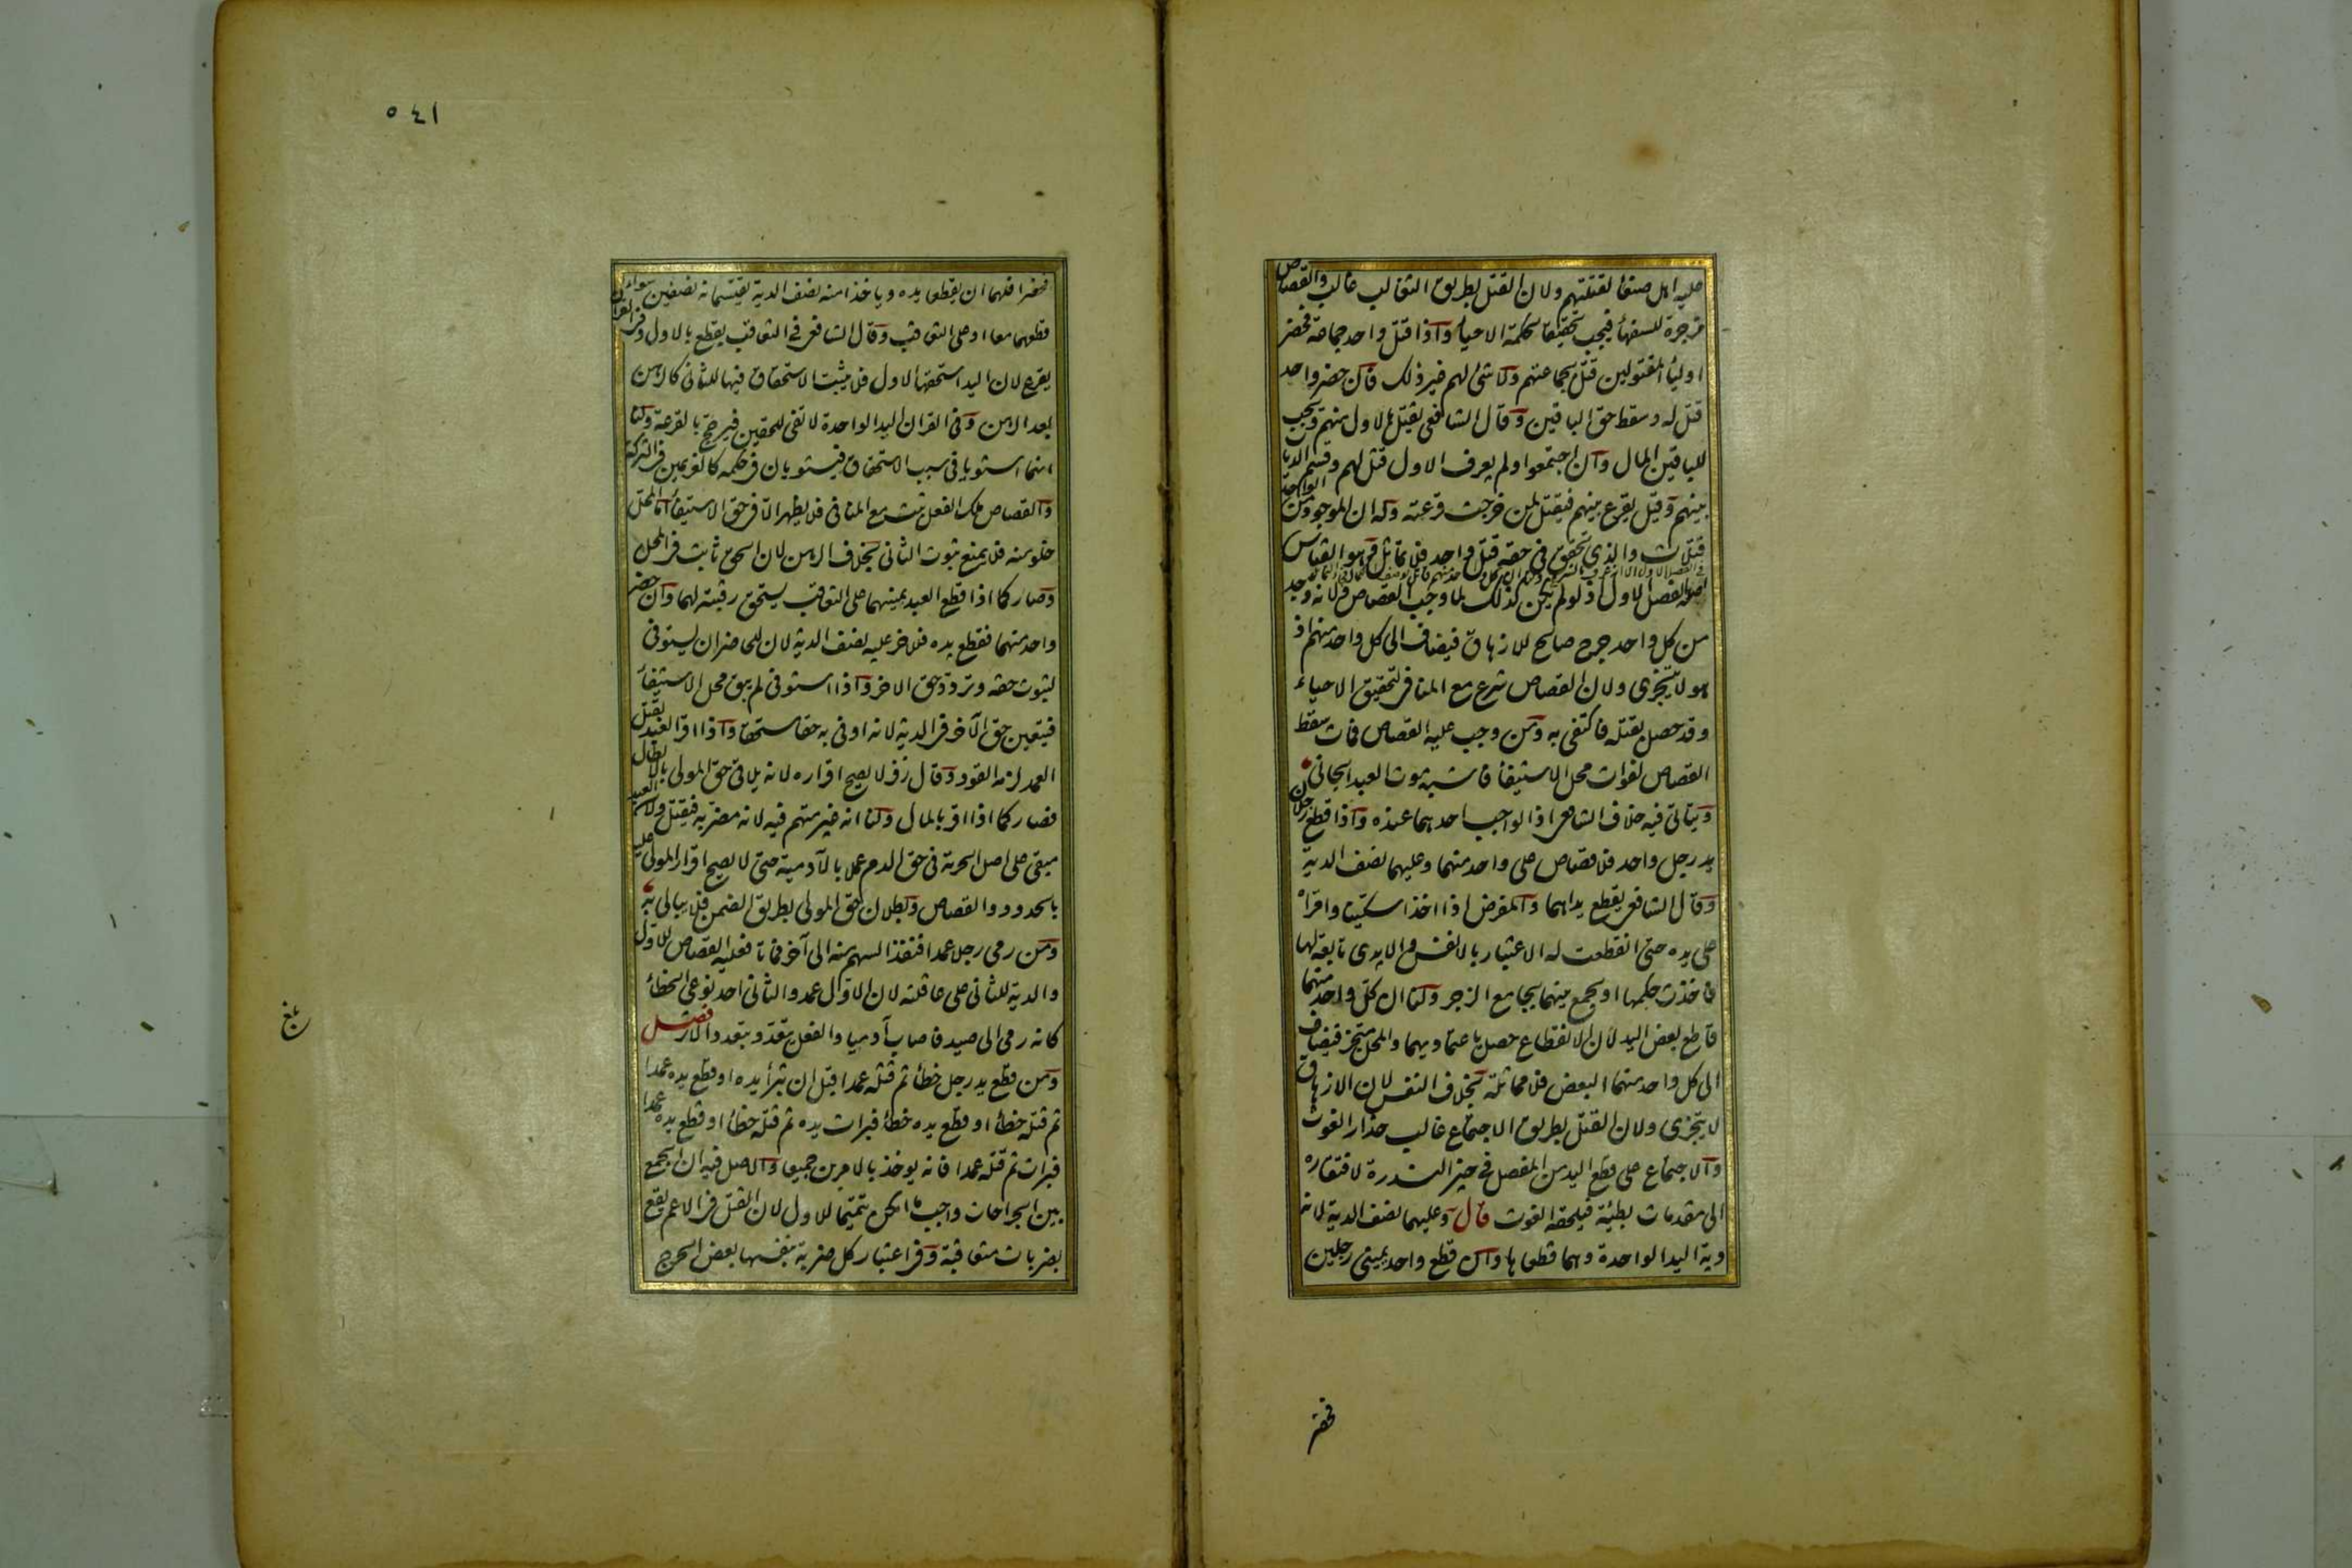 عليه اهل صنعاء لقتلتهم ولان القتل بطريق التغالب غالب والقصاص
مزجرة للسفهاء فيجب تحقيقا لحكمة الاحياء واذا قتل واحد جماعة فحضر
اولياء المقتولين قتل بجماعتهم ولا شئ لهم غير ذلك فان حضر واحد
قتل له وسقط حق الباقين وقال الشافعى يقتل بالاول منهم ويجب
للباقين المال وان اجتمعوا ولم يعرف الاول قتل لهم وقسم الديات
بينهم وقيل يقرع بينهم فيقتل لمن خرجت قرعته وله ان الموجود من الواحد
قتلات والذى تحقق فى حقه قتل واحد فلا تماثل وهو القياس
فى الفصل الاول الا انه عرف بالشرع ولنا ان كل واحد منهم قاتل بوصف الكمال فجاء التماثل
اصله الفصل الاول اذ لو لم يكن كذلك لما وجب القصاص ولانه وجد
من كل واحد جرح صالح للازهاق فيضاف الى كل واحد منهم اذ
هو لا يتجزى ولان القصاص شرع مع المنافى لتحقيق الاحياء
وقد حصل بقتله فاكتفى به ومن وجب عليه القصاص فمات سقط
القصاص لفوات محل الاستيفاء فاشبه موت العبد الجانى
ويتاتى فيه خلاف الشافعى اذ الواجب احدهما عنده واذا قطع رجلان
يد رجل واحد فلا قصاص على واحد منهما وعليهما نصف الدية
وقال الشافعى يقطع يداهما والمفرض اذا اخذا سكينا وامراه
على يده حتى انقطعت له الاعتبار بالانفس والايدى تابعة لها
فاخذت حكمها او يجمع بينهما بجامع الزجر ولنا ان كل واحد منهما
قاطع بعض اليد لان الانقطاع حصل باعتماديهما والمحل متجز فيضاف
الى كل واحد منهما البعض فلا مماثلة بخلاف النفس لان الازهاق
لا يتجزى ولان القتل بطريق الاجتماع غالب حذار الغوث
والاجتماع على قطع اليد من المفصل فى حيز الندرة لافتقاره
الى مقدمات بطيئة فيلحقه الغوث قال وعليهما نصف الدية لانه
دية اليد الواحدة وهما قطعاها وان قطع واحد يمينى رجلين
فحضر
٥٤١
فحضرا فلهما ان يقطعا يده وياخذا منه نصف الدية يقتسمانه نصفين سواء
قطعهما معا او على التعاقب وقال الشافعى فى التعاقب يقطع بالاول وفى القران
يقرع لان اليد استحقها الاول فلا يثبت الاستحقاق فيها للثانى كالرهن
بعد الرهن وفى القران اليد الواحدة لا تفى للحقين فيرجح بالقرعة ولنا
انهما استويا فى سبب الاستحقاق فيستويان فى حكمه كالغريمين فى التركة
والقصاص ملك الفعل يثبت مع المنافى فلا يظهر الا فى حق الاستيفاء اما المحل
خلو منه فلا يمنع ثبوت الثانى بخلاف الرهن لان الحق ثابت فى المحل
وصار كما اذا قطع العبد يمينيهما على التعاقب يستحق رقبته لهما وان حضر
واحد منهما فقطع يده فللاخر عليه نصف الدية لان للحاضر ان يستوفى
لثبوت حقه وتردد حق الاخر واذا استوفى لم يبق محل الاستيفاء
فيتعين حق الآخر فى الدية لانه اوفى به حقا مستحقا واذا اقر العبد بقتل
العمد لزمه القود وقال زفر لا يصح اقراره لانه يلاقى حق المولى بالابطال
فصار كما اذا اقر بالمال ولنا انه غير متهم فيه لانه مضر به فيقبل ولان العبد
مبقى على اصل الحرية فى حق الدم عملا بالآدمية حتى لا يصح اقرار المولى عليه
بالحدود والقصاص وبطلان حق المولى بطريق الضمن فلا يبالى به
ومن رمى رجلا عمدا فنفذ السهم منه الى آخر فماتا فعليه القصاص للاول
والدية للثانى على عاقلته لان الاول عمد والثانى احد نوعى الخطاء
كانه رمى الى صيد فاصاب آدميا والفعل يتعدد بتعدد الاثر فصل
ومن قطع يد رجل خطأ ثم قتله عمدا قبل ان تبرأ يده او قطع يده عمدا
ثم قتله خطأ او قطع يده خطأ فبرات يده ثم قتله خطأ او قطع يده عمدا
فبرات ثم قتله عمدا فانه يوخذ بالامرين جميعا والاصل فيه ان الجمع
بين الجراحات واجب ما امكن تتميما للاول لان القتل فى الاعم يقع
بضربات متعاقبة وفى اعتبار كل ضربة بنفسها بعض الحرج
بلغ